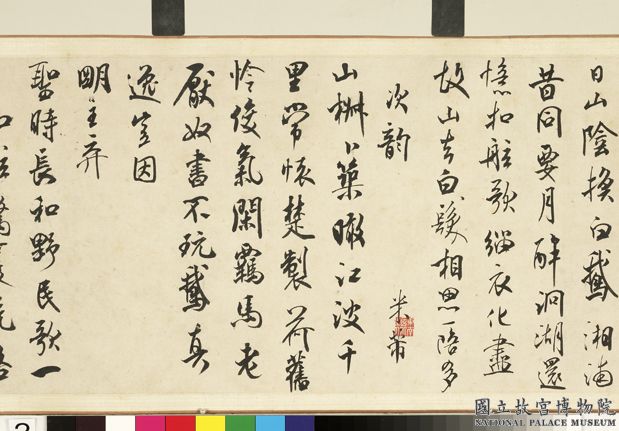 日山陰換白鵝湘浦
昔同要月醉洞湖還
憶扣舷歌緇衣化盡
故山去白髮相思一陪多
次韵
米芾
山椒卜築瞰江波千
里常懷楚製荷舊
怜俊氣閑羈馬老
厭奴書不玩鵝真
逸豈因
明主弃
聖時長和野民歌一
國立故宮博物院
NATIONAL PALACE MUSEUM